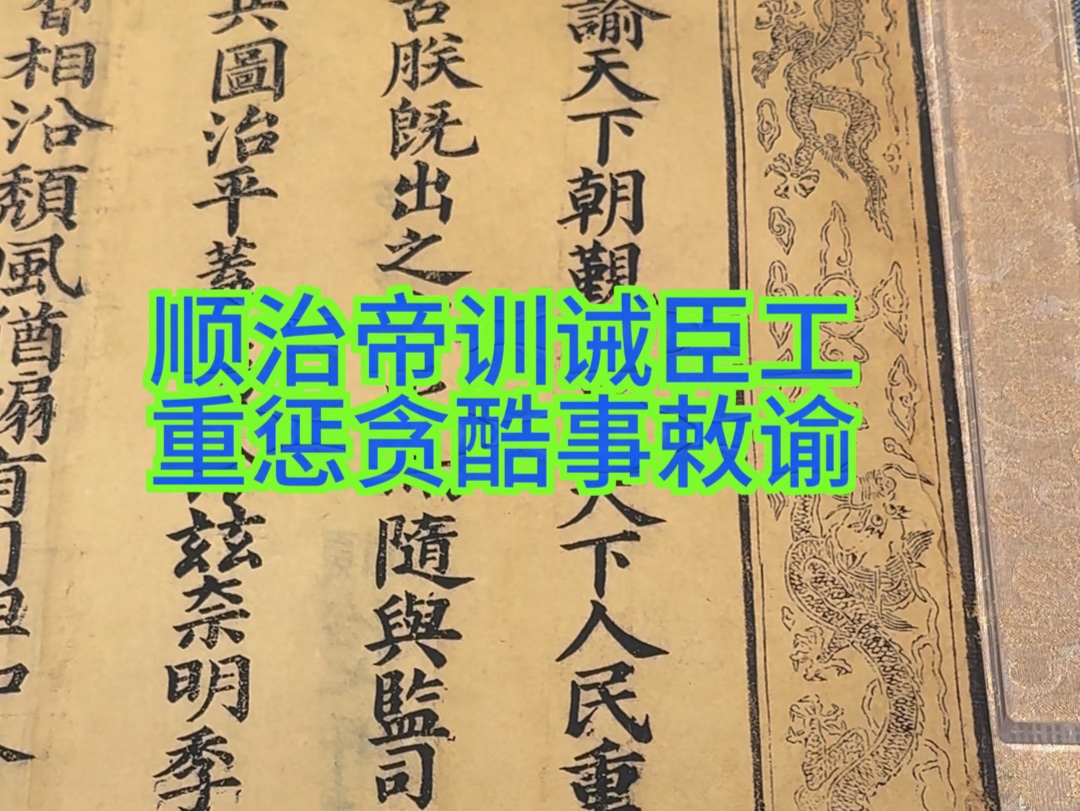 顺治帝训诫臣工
重惩贪酷事敕谕
諭天下朝覲天下人民重
朕既出之隨與監司
圖治平蓋茲奈明季
相沿頹風